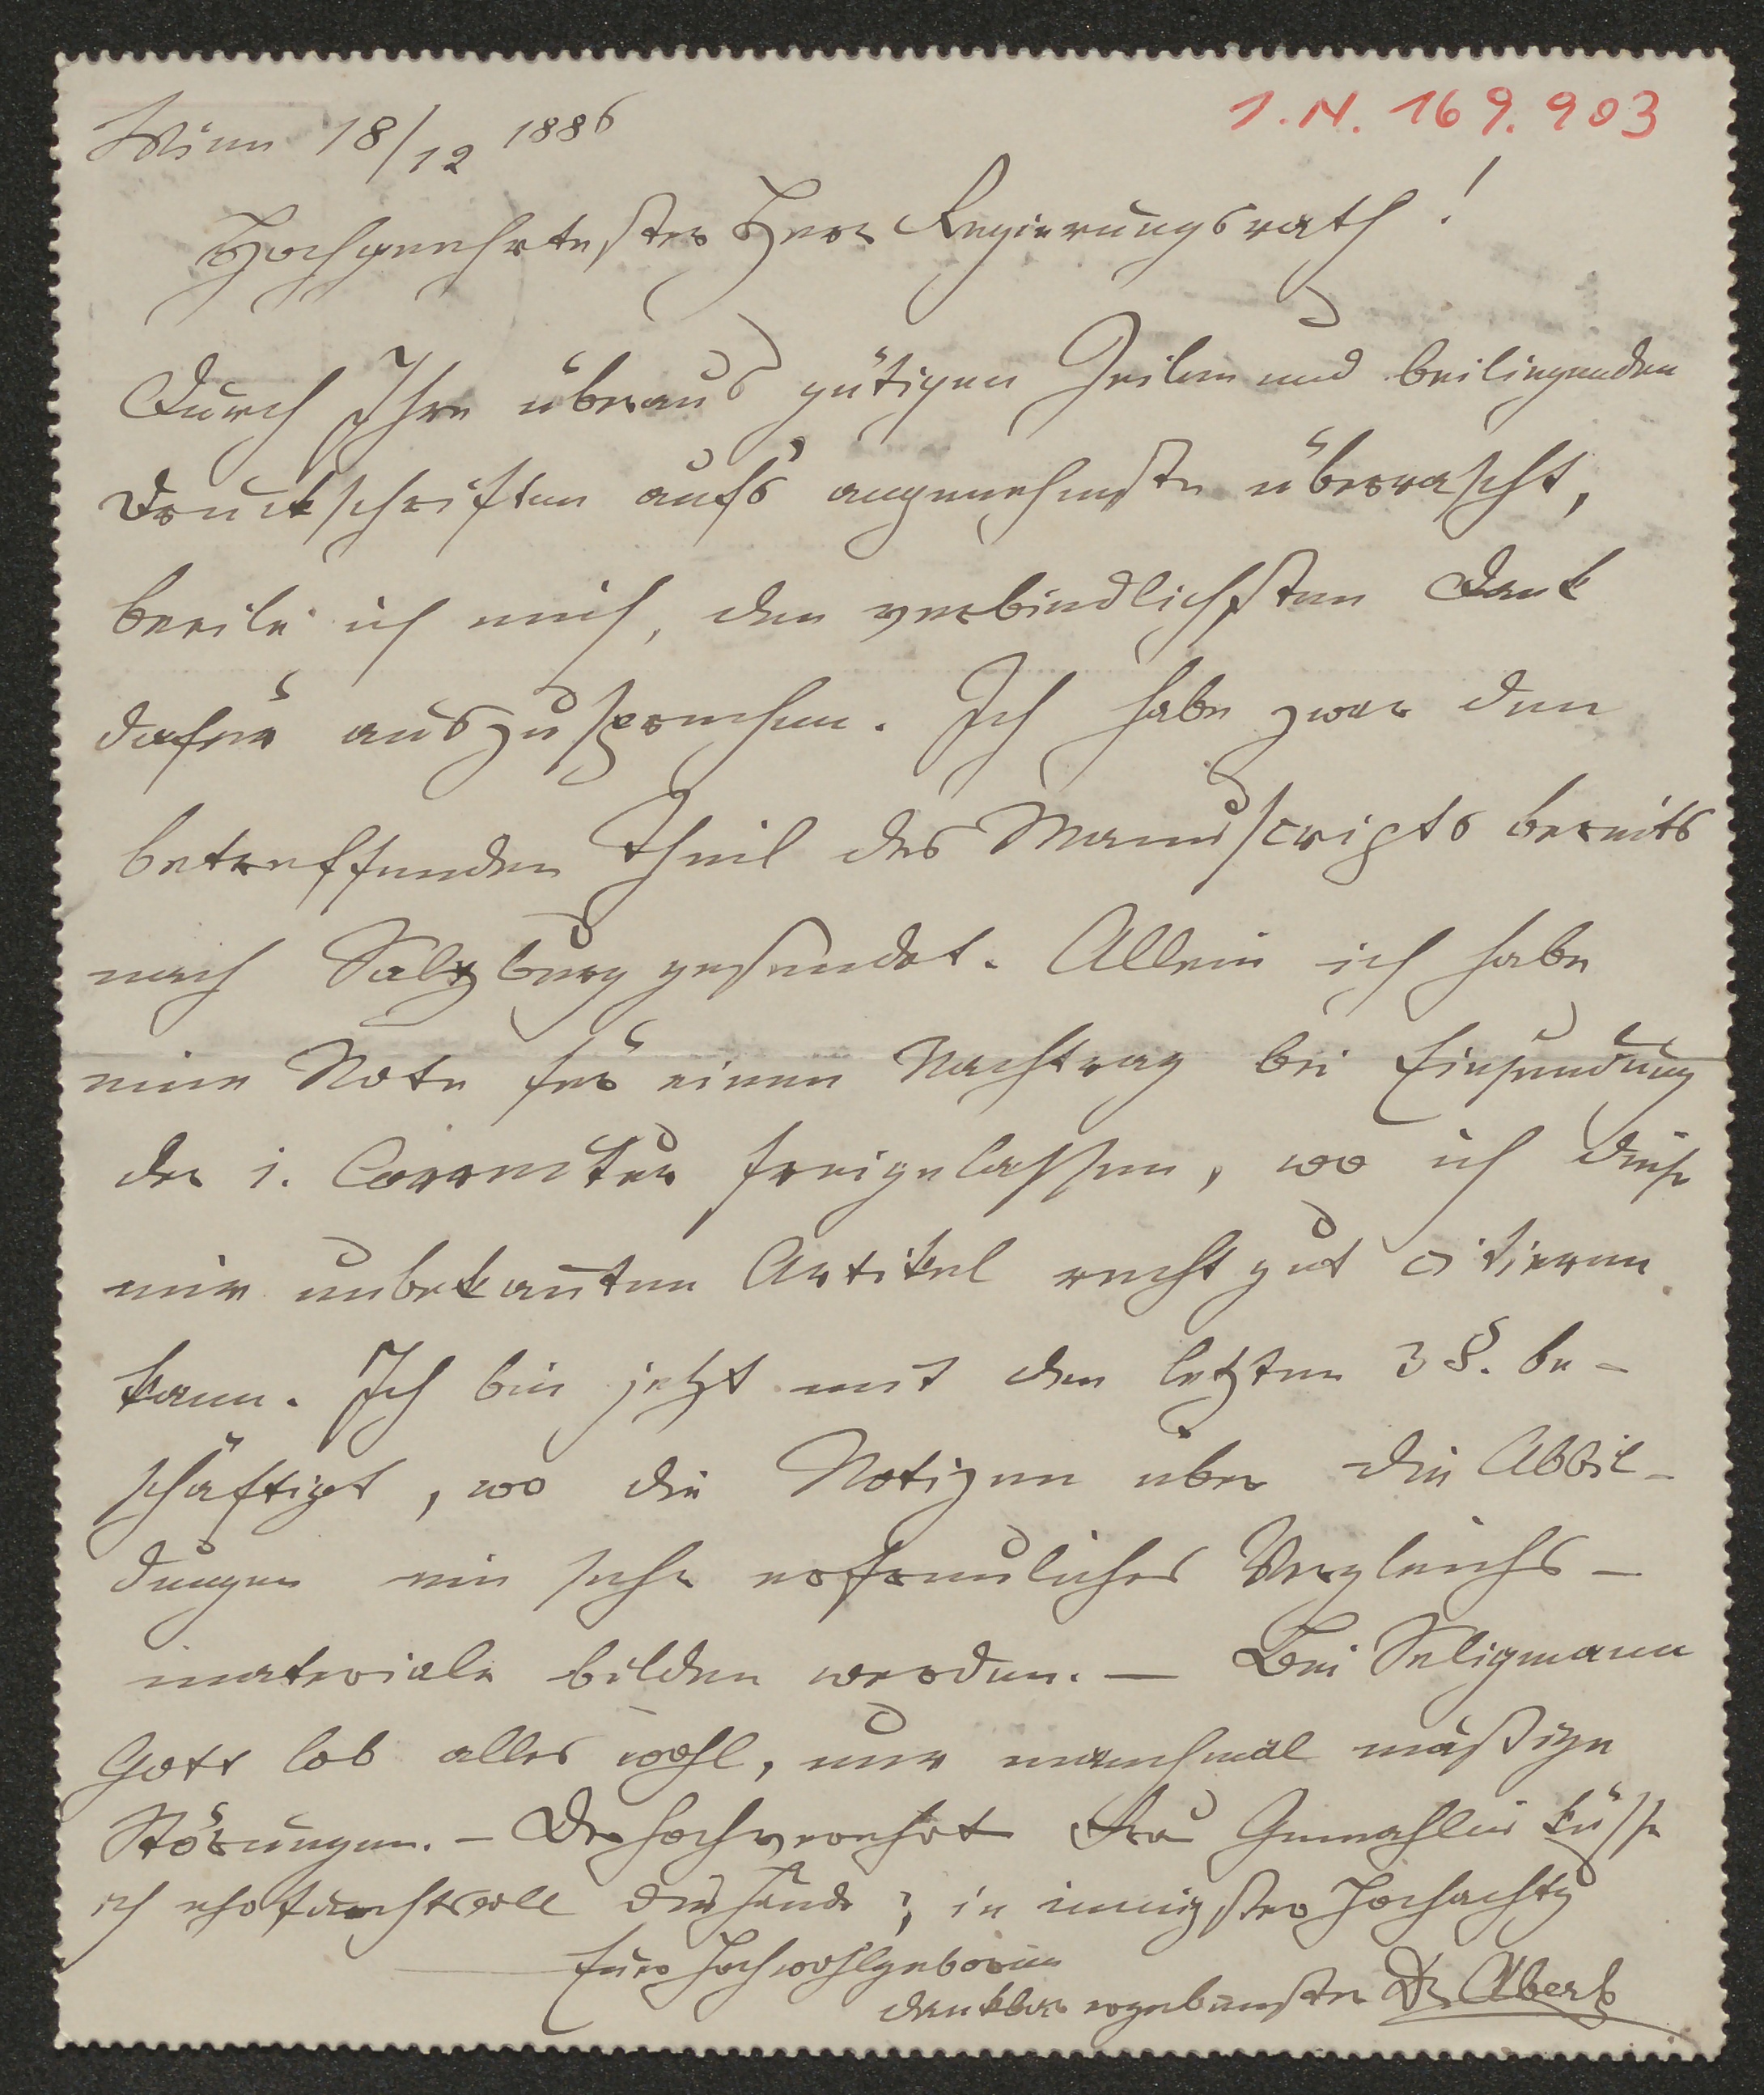 Wien 18/12 1886
I. N. 169.903
Hochgeehrtester Herr Regierungsrath!
Durch Ihre überaus gütigen Zeilen und beiliegenden
Druckschriften aufs angenehmste überrascht,
beeile ich mich, den verbindlichsten Dank
dafür auszusprechen. Ich habe zwar den
betreffenden Theil des Manuscripts bereits
nach Salzburg gesendet. Allein ich habe
eine Note für einen Nachtrag bei Einsendung
der 1. Correctur freigelassen, wo ich diese
mir unbekañten Artikel recht gut citieren
kann. Ich bin jetzt mit den letzten 3 §. be-
schäftigt, wo die Notizen über die Abbil-
dungen ein sehr erfreuliches Vergleichs-
materiale bilden werden. — Bei Seligmann
Gott lob alles wohl, nur manchmal mäßige
Störungen. – Der hochverehrt Frau Gemahlin küsse
ich ehrfurchtsvoll die Hände; in innigster Hochachtg
Euer Hochwohlgeboren
dankbar ergebenster Dr. Albert